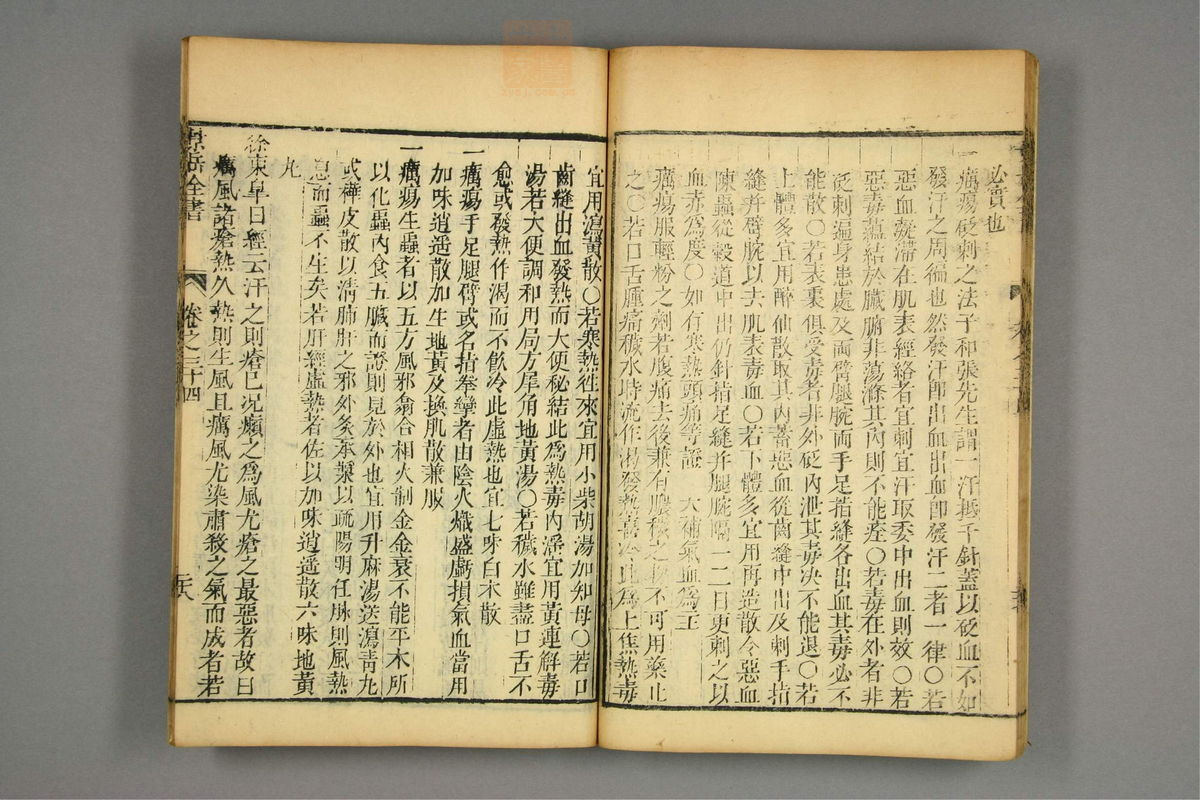 必實也
一癘瘍砭刺之法子和張先生謂一汗抵千針蓋以砭血不如
發汗之周徧也然發汗即出血出血即發汗二者一律〇若
惡血凝滯在肌表經絡者宜刺宜汗取委中出血則效〇若
惡毒蘊結於臟腑非蕩滌其內則不能痊〇若毒在外者非
砭刺遍身患處及兩臂腿腕兩手足指縫各出血其毒必不
能散〇若表裏俱受毒者非外砭內泄其毒決不能退〇若
上體多宜用醉仙散取其內蓄惡血從齒縫中出及刺手指
縫并臂腕以去肌表毒血〇若下體多宜用再造散令惡血
陳蟲從穀道中出仍針指足縫并腿腕隔一二日更刺之以
血赤為度〇如有寒熱頭痛等證 大補氣血為主
癘瘍服輕粉之劑若腹痛去後兼有膿穢之物不可用藥止
之〇若口舌腫痛穢水時流作渴發熱喜冷此為上焦熱毒
宜用瀉黃散〇若寒熱徃來宜用小柴胡湯加知母〇若口
齒縫出血發熱而大便秘結此爲熱毒內滛宜用黃連解毒
湯若大便調和用局方犀角地黃湯〇若穢水雖盡口舌不
愈或發熱作渴而不飲冷此虛熱也宜七味白木散
一癘瘍手足腿臂或各指拳攣者由陰火熾盛虧損氣血當用
加味逍遥散加生地黃及換肌散兼服
一癘瘍生蟲者以五方風邪翕合相火制金金衰不能平木所
以化蟲內食五臟而證則見於外也宜用升麻湯送瀉靑九
或樺皮散以清肺肝之邪外灸承漿以疏陽明任脉則風熱
息而蟲不生矣若肝經虛熱者佐以加味逍遥散六味地黃
九
徐東皐曰經云汗之則瘡已况癩之爲風尤瘡之最惡者故曰
癘風諸瘡熱久熱則生風且癘風尤染肅殺之氣而成者若
景岳全書 卷之三十四 三六